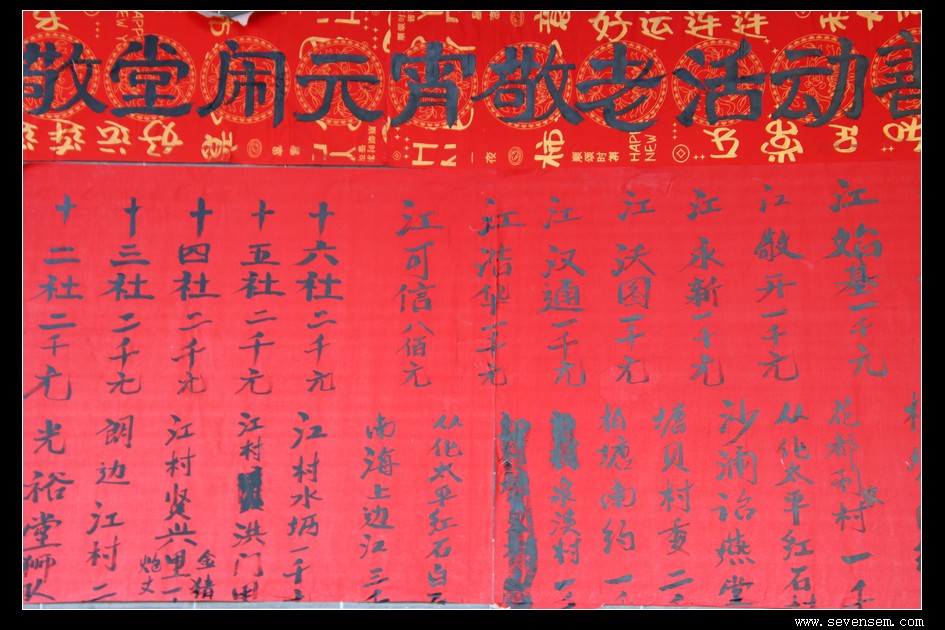 敬堂闹元宵敬老活动善
好运连连
HAPPY NEW
江始基一千元
江敬开一千元
江永新一千元
江沃图一千元
江汉通一千元
江浩华一千元
江可信八佰元
十六社二千元
十五社二千元
十四社二千元
十三社二千元
十二社二千元
花都利村一千
从化太平红石村
沙涌诒燕堂
塘贝村二
柏塘南约一
村一
从化太平红石白石
南海上边江三千
江村水坜一千
江村洪门
江村贤兴里
金猪
炮丈
朗边江村二
光裕堂狮队
www.sevensem.com